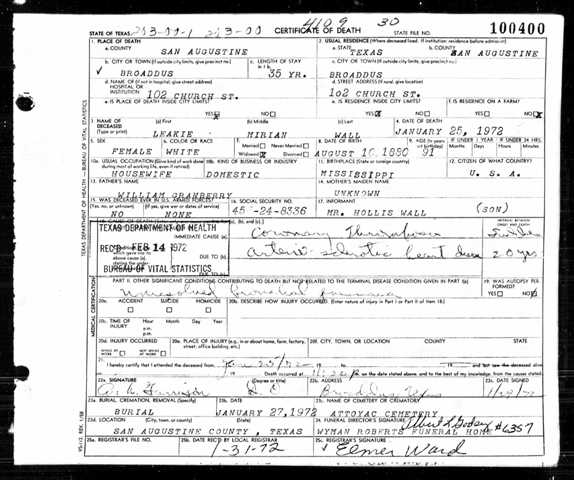 4109 30
STATE OF TEXAS CERTIFICATE OF DEATH STATE FILE NO. 100400
1. PLACE OF DEATH 2. USUAL RESIDENCE (Where deceased lived. If institution: residence before admission)
a. COUNTY SAN AUGUSTINE a. STATE TEXAS b. COUNTY SAN AUGUSTINE
b. CITY OR TOWN (If outside city limits, give precinct no.) c. LENGTH OF STAY c. CITY OR TOWN (If outside city limits, give precinct no.)
BROADDUS 35 YR. BROADDUS
d. NAME OF (If not in hospital, give street address) HOSPITAL OR INSTITUTION d. STREET ADDRESS (If rural, give location)
102 CHURCH ST. 102 CHURCH ST.
e. IS PLACE OF DEATH INSIDE CITY LIMITS? e. IS RESIDENCE INSIDE CITY LIMITS? f. IS RESIDENCE ON A FARM?
YES NO YES NO YES NO
3. NAME OF DECEASED (Type or print) (a) First (b) Middle (c) Last 4. DATE OF DEATH
LEAKIE MIRIAN WALL JANUARY 25, 1972
5. SEX 6. COLOR OR RACE 7. Married Never Married Widowed Divorced 8. DATE OF BIRTH 9. AGE IF UNDER 1 YEAR IF UNDER 24 HRS.
FEMALE WHITE AUGUST 16, 1880 91
10a. USUAL OCCUPATION (Give kind of work done during most of working life, even if retired) 10b. KIND OF BUSINESS OR INDUSTRY 11. BIRTHPLACE (State or foreign country) 12. CITIZEN OF WHAT COUNTRY?
HOUSEWIFE DOMESTIC MISSISSIPPI U. S. A.
13. FATHER'S NAME 14. MOTHER'S MAIDEN NAME
WILLIAM GRANBERRY UNKNOWN
15. WAS DECEASED EVER IN U.S. ARMED FORCES? (Yes, no, or unknown) (If yes, give war or dates of service) 16. SOCIAL SECURITY NO. 17. INFORMANT
NO NONE 45 -24-8336 MR. HOLLIS WALL (SON)
TEXAS DEPARTMENT OF HEALTH
IMMEDIATE CAUSE (a) Coronary
REC'D FEB 14 1972 DUE TO (b) arterio-sclerotic heart 20 yrs.
DUE TO (c)
BUREAU OF VITAL STATISTICS
PART II. OTHER SIGNIFICANT CONDITIONS CONTRIBUTING TO DEATH BUT NOT RELATED TO THE TERMINAL DISEASE CONDITION GIVEN IN PART I(a) 19. WAS AUTOPSY PERFORMED?
Unresolved bronchial YES NO
20a. ACCIDENT SUICIDE HOMICIDE 20b. DESCRIBE HOW INJURY OCCURRED. (Enter nature of injury in Part I or Part II of item 18.)
20c. TIME OF INJURY Hour Month Day Year
a.m.
p.m.
20d. INJURY OCCURRED 20e. PLACE OF INJURY (e.g. in or about home, farm, factory, street, office building, etc.) 20f. CITY, TOWN, OR LOCATION COUNTY STATE
WHILE AT WORK NOT WHILE AT WORK
21. I hereby certify that I attended the deceased from
Death occurred at on the date stated above; and to the best of my knowledge, from the causes stated.
22a. SIGNATURE (Degree or title) 22b. ADDRESS 22c. DATE SIGNED
23a. BURIAL, CREMATION, REMOVAL (Specify) 23b. DATE 23c. NAME OF CEMETERY OR CREMATORY
BURIAL JANUARY 27, 1972 ATTOYAC CEMETERY
23d. LOCATION (City, town, or county) (State) 24. FUNERAL DIRECTOR'S SIGNATURE #6357
SAN AUGUSTINE COUNTY, TEXAS WYMAN ROBERTS FUNERAL HOME
25a. REGISTRAR'S FILE NO. 25b. DATE REC'D BY LOCAL REGISTRAR 25c. REGISTRAR'S SIGNATURE
1-31-72 Elmer Ward
TEXAS DEPARTMENT OF HEALTH — BUREAU OF VITAL STATISTICS
MEDICAL CERTIFICATION